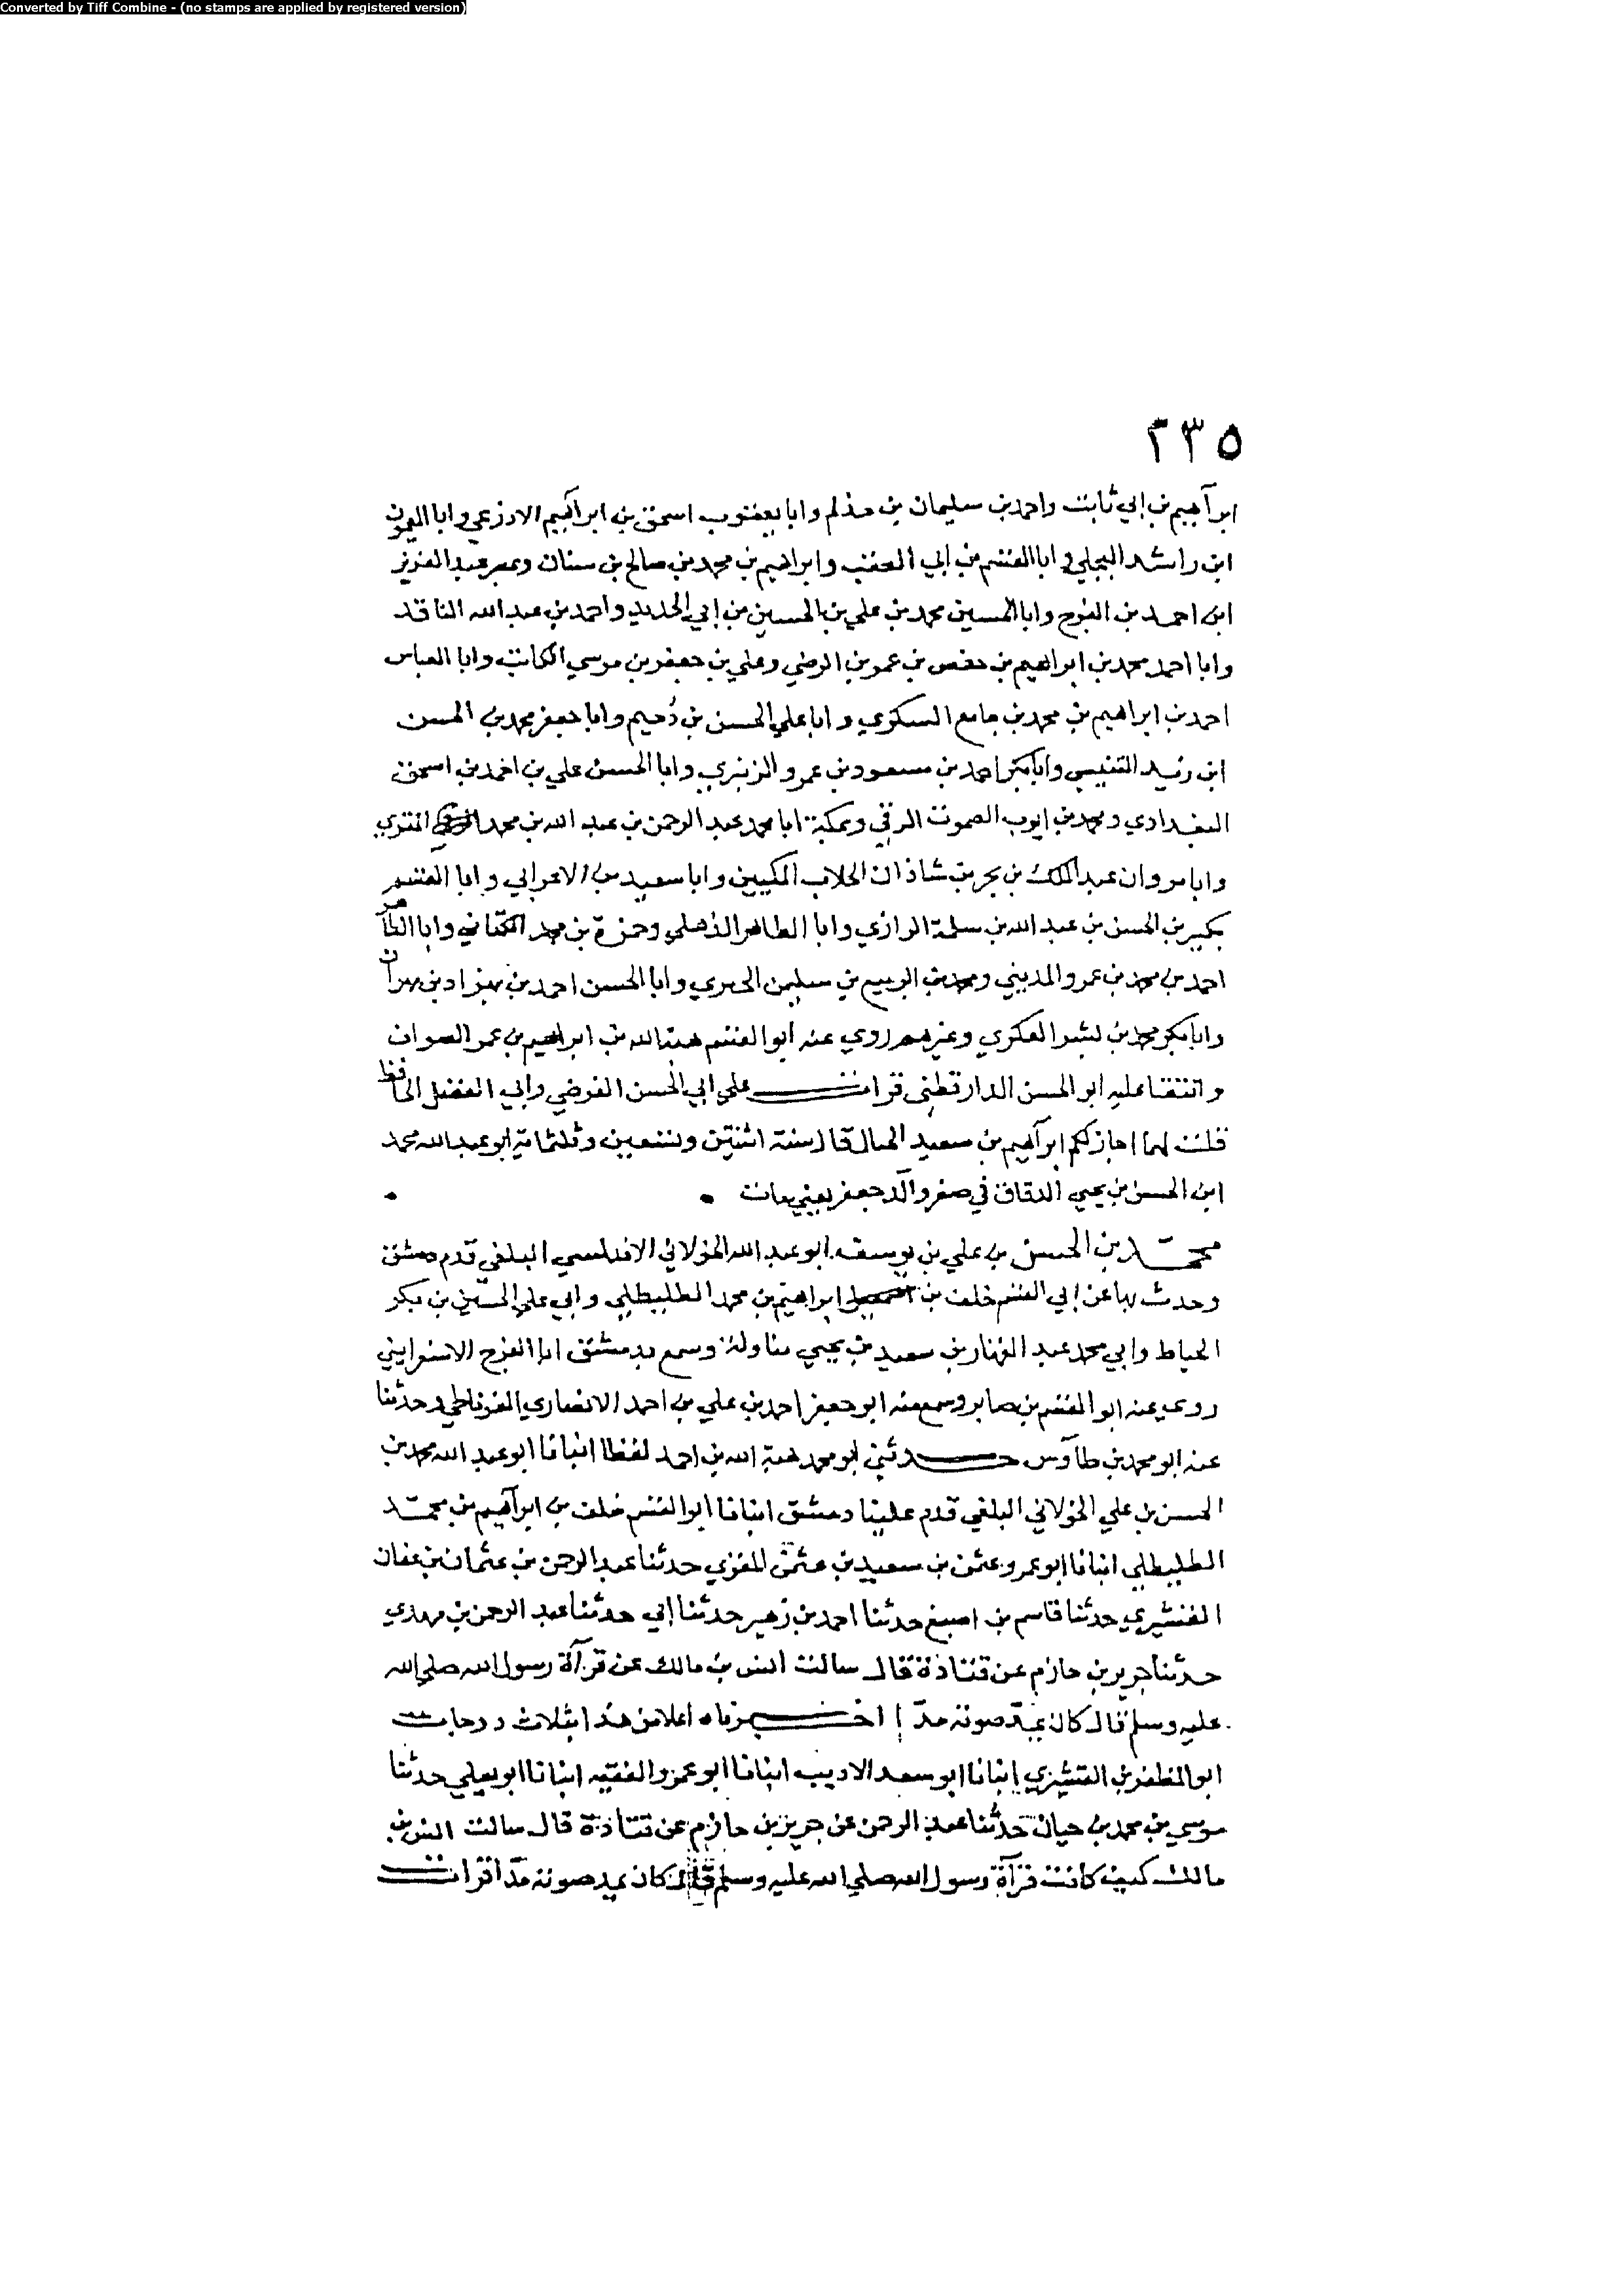 Converted by Tiff Combine - (no stamps are applied by registered version)
٢٣٥
ابرآهيم بن ابي ثابت واحمد بن سليمان بن حذلم وابا يعقوب اسحق بن ابراهيم الاذرعي وابا الميمون
ابن راشد البجلي وابا القسم بن ابي العقب وابراهيم بن محمد بن صالح بن سنان وعمر عبد العزيز
ابن احمد بن الفرج وابا الحسين محمد بن علي بن الحسين بن ابي الحديد واحمد بن عبد الله الناقد
وابا احمد محمد بن ابراهيم بن حفص بن عمر بن الرضي وعلي بن جعفر بن موسي الكاتب وابا العباس
احمد بن ابراهيم بن محمد بن جامع السكري وابا علي الحسن بن دُحيم وابا جعفر محمد بن الحسن
ابن زيد التنيسي وابا بكر احمد بن مسعود بن عمرو الزنبري وابا الحسن علي بن احمد بن اسحق
البغدادي ومحمد بن ايوب الصموت الرقي وبمكة ابا محمد عبد الرحمن بن عبد الله بن محمد المقري
وابا مروان عبد الملك بن بحر بن شاذان الجلاب المكيين وابا سعيد بن الاعرابي وابا القسم
بكير بن الحسن بن عبد الله بن سلمة الرازي وابا الطاهر الذهلي وحمزة بن محمد الكتاني وابا الطاهر
احمد بن محمد بن عمرو المديني ومحمد بن الربيع بن سليمن الجيزي وابا الحسن احمد بن بهزاد بن مهران
وابا بكر محمد بن بشر العكري وغيرهم روي عنه ابو القسم هبة الله بن ابراهيم بن عمر الصواف
وانتقا عليه ابو الحسن الدارقطني قرات علي ابي الحسن الفرضي وابي الفضل الحافظ
قلت لهما اجاز لكم ابرآهيم بن سعيد الحبال قال سنة اثنتين وتسعين وثلثماية ابو عبد الله محمد
ابن الحسن بن يحيي الدقاق في صفر والد جعفر يعني مات
محمّد بن الحسن بن علي بن يوسف ابو عبد الله الخولاني الاندلسي البلغي قدم دمشق
وحدث بها عن ابي القسم خلف بن ابراهيم بن محمد الطليطلي وابي علي الحسين بن بكر
الخياط وابي محمد عبد القهار بن سعيد بن يحيي مناولة وسمع بدمشق ابا الفرج الاسفرايني
روي عنه ابو القسم بن صابر وسمع منه ابو جعفر احمد بن علي بن احمد الانصاري الغرناطي وحدثنا
عنه ابو محمد بن طآوس حدثني ابو محمد هبة الله بن احمد لفظا انبانا ابو عبد الله محمد بن
الحسن بن علي الخولاني البلغي قدم علينا دمشق انبانا ابو القسم خلف بن ابرآهيم بن محمّد
الطليطلي انبانا ابو عمرو عثمن بن سعيد بن عثمن المقري حدثنا عبد الرحمن بن عثمان بن عفان
القشيري حدثنا قاسم بن اصبغ حدثنا احمد بن زهير حدثنا ابي حدثنا عبد الرحمن بن مهدي
حدثنا جرير بن حازم عن قتادة قال سالت انس بن مالك عن قرآة رسول الله صلي الله
عليه وسلم قال كان يمدّ صوته مدّا اخبرناه اعلا من هذا بثلاث درجات
ابو المظفر بن القشيري انبانا ابو سعد الاديب انبانا ابو عمرو الفقيه انبانا ابو يعلي حدثنا
موسي بن محمد بن حيان حدثنا عبد الرحمن عن جرير بن حازم عن قتادة قال سالت انس بن
مالك كيف كانت قرآة رسول الله صلي الله عليه وسلم قال كان يمد صوته مدّا قرات